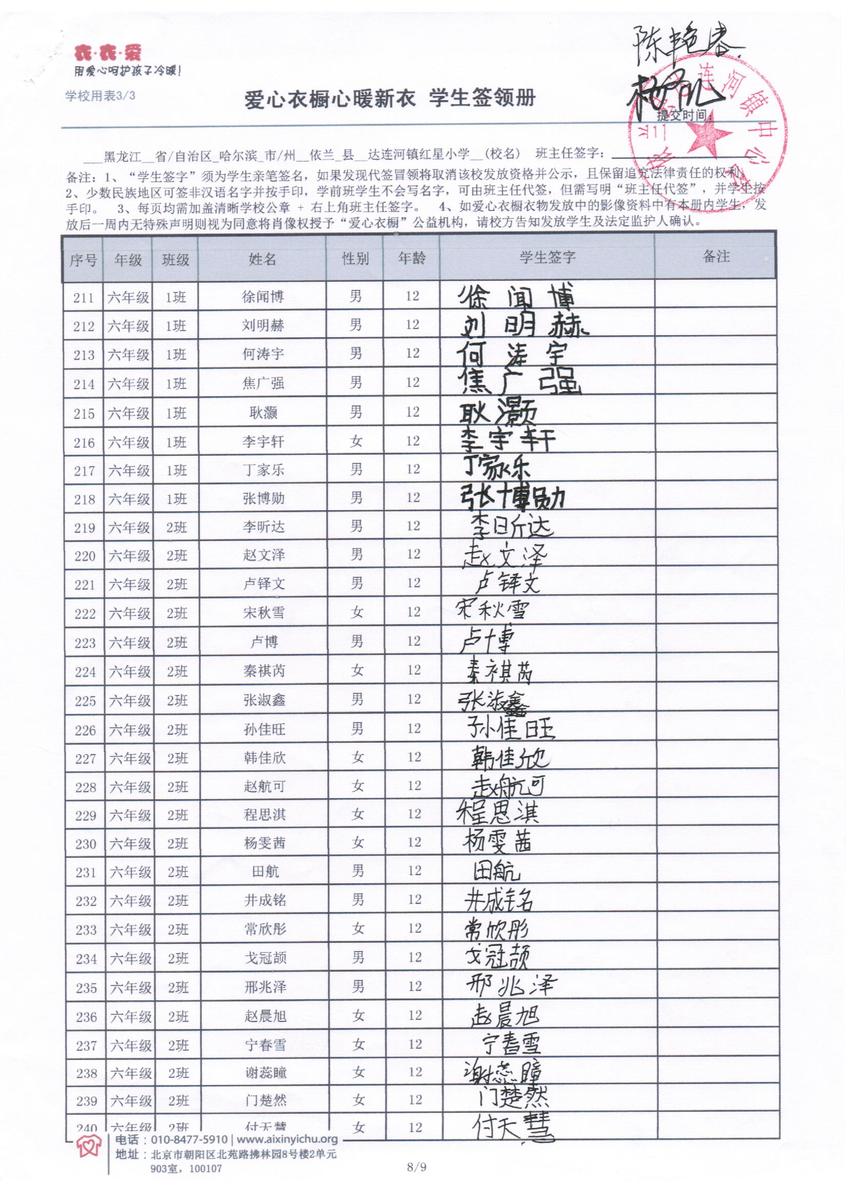 衣·衣·爱
用爱心呵护孩子冷暖!
陈艳春
学校用表3/3
爱心衣橱心暖新衣 学生签领册
提交时间:
___黑龙江__省/自治区_哈尔滨_市/州__依兰_县__达连河镇红星小学__(校名) 班主任签字:
备注:1、“学生签字”须为学生亲笔签名,如果发现代签冒领将取消该校发放资格并公示,且保留追究法律责任的权利。
2、少数民族地区可签非汉语名字并按手印,学前班学生不会写名字,可由班主任代签,但需写明“班主任代签”,并学生按
手印。 3、每页均需加盖清晰学校公章 + 右上角班主任签字。 4、如爱心衣橱衣物发放中的影像资料中有本册内学生,发
放后一周内无特殊声明则视为同意将肖像权授予“爱心衣橱”公益机构,请校方告知发放学生及法定监护人确认。
序号 年级 班级 姓名 性别 年龄 学生签字 备注
211 六年级 1班 徐闻博 男 12 徐闻博
212 六年级 1班 刘明赫 男 12 刘明赫
213 六年级 1班 何涛宇 男 12 何涛宇
214 六年级 1班 焦广强 男 12 焦广强
215 六年级 1班 耿灏 男 12 耿灏
216 六年级 1班 李宇轩 女 12 李宇轩
217 六年级 1班 丁家乐 男 12 丁家乐
218 六年级 1班 张博勋 男 12 张博勋
219 六年级 2班 李昕达 男 12 李昕达
220 六年级 2班 赵文泽 男 12 赵文泽
221 六年级 2班 卢铎文 男 12 卢铎文
222 六年级 2班 宋秋雪 女 12 宋秋雪
223 六年级 2班 卢博 男 12 卢博
224 六年级 2班 秦祺芮 女 12 秦祺芮
225 六年级 2班 张淑鑫 男 12 张淑鑫
226 六年级 2班 孙佳旺 男 12 孙佳旺
227 六年级 2班 韩佳欣 女 12 韩佳欣
228 六年级 2班 赵航可 女 12 赵航可
229 六年级 2班 程思淇 女 12 程思淇
230 六年级 2班 杨雯茜 女 12 杨雯茜
231 六年级 2班 田航 男 12 田航
232 六年级 2班 井成铭 男 12 井成铭
233 六年级 2班 常欣彤 女 12 常欣彤
234 六年级 2班 戈冠颉 男 12 戈冠颉
235 六年级 2班 邢兆泽 男 12 邢兆泽
236 六年级 2班 赵晨旭 女 12 赵晨旭
237 六年级 2班 宁春雪 女 12 宁春雪
238 六年级 2班 谢蕊瞳 女 12 谢蕊瞳
239 六年级 2班 门楚然 女 12 门楚然
240 六年级 2班 付天慧 女 12 付天慧
电话:010-8477-5910 | www.aixinyichu.org
地址:北京市朝阳区北苑路拂林园8号楼2单元
903室,100107
8/9